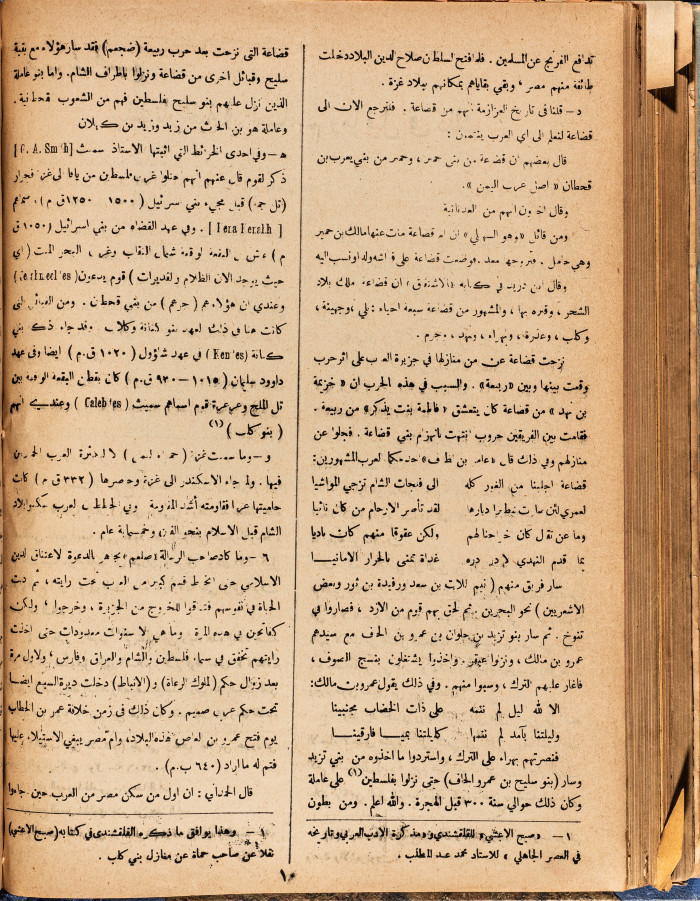 تدافع الفرنج عن المسلمين . فلما فتح السلطان صلاح الدين البلاد دخلت
طائفة منهم مصر ، وبقي بقاياهم بمكانهم ببلاد غزة .
د – قلنا في تاريخ العزازمة انهم من قضاعة . فلنرجع الان الى
قضاعة لنعلم الى اي العرب ينتمون :
قال بعضهم ان قضاعة من بني حمير ، وحمير من بني يعرب بن
قحطان « اصل عرب اليمن » .
وقال آخرون انهم من العدنانية
ومن قائل « وهو السهيلي » ان ام قضاعة مات عنها مالك بن حمير
وهي حامل . فتزوجها معد . فوضعت قضاعة على فراشه ونسب اليه
وقال ابن دريد في كتابه « الاشتقاق » ان قضاعة ملك بلاد
الشحر ، وقبره بها ، والمشهور من قضاعة سبعة احياء : بلي ، وجهينة ،
وكلب ، وعذرة ، وبهراء ، ونهد ، وجرم .
نزحت قضاعة عن من منازلها في جزيرة العرب على اثر حرب
وقعت بينها وبين « ربيعة » . والسبب في هذه الحرب ان « خزيمة
بن نهد » من قضاعة كان يتعشق « فاطمة بنت يذكر » من ربيعة .
فقامت بين الفريقين حروب انتهت بانهزام بني قضاعة . فجلوا عن
منازلهم وفي ذلك قال « عامر بن الظرب » احد حكماء العرب المشهورين :
قضاعة اجلينا من الغور كله الى فلجات الشام تزجي المواشيا
لعمري لئن صارت شطيرا ديارها لقد تأصر الارحام من كان نائيا
وما عن تقال كان اخراجنا لهم ولكن عقوقا منهم كان باديا
بما قدم النهدي لا در دره غداة تمنى بالحرار الامانيا
سار فريق منهم ( تيم اللات بن سعد ورفيدة بن ثور وبعض
الاشعريين ) نحو البحرين ثم لحق بهم قوم من الازد ، فصاروا في
تنوخ . ثم سار بنو تزيد بن حلوان بن عمرو بن الحاف مع سيدهم
عمرو بن مالك ، ونزلوا عبقر . واخذوا يشتغلون بنسج الصوف ،
فاغار عليهم الترك ، وسبوا منهم . وفي ذلك يقول عمرو بن مالك :
الا لله ليل لم ننمه على ذات الخضاب مجنبينا
وليلتنا بآمد لم ننمها كليلتنا بميا فارقينا
فنصرتهم بهراء على الترك ، واستردوا ما اخذوه من بني تزيد
وسار ( بنو سليح بن عمرو الحاف ) حتى نزلوا بفلسطين (١) على عاملة
وكان ذلك حوالي سنة ٣٠٠ قبل الهجرة . والله اعلم . ومن بطون
١ – « صبح الاعشى » للقلقشندي و « مذكرة الادب العربي وتاريخه
في العصر الجاهلي » للاستاذ محمد عبد المطلب .
قضاعة التي نزحت بعد حرب ربيعة ( ضجعم ) فقد سار هؤلاء مع بقية
سليح وقبائل اخرى من قضاعة ونزلوا باطراف الشام . واما بنو عاملة
الذين نزل عليهم بنو سليح بفلسطين فهم من الشعوب قحطانية .
وعاملة هو بن الحرث من زيد وزيد بن كهلان
ه – وفي احدى الخرائط التي اثبتها الاستاذ سميث [ G. A. Smith ]
ذكر لقوم قال عنهم انهم حلوا غربي فلسطين من يافا الى غزة فجرار
( تل جمة ) قبل مجيء بني اسرائيل ( ١٥٠٠ – ١٢٥٠ ق م ) ، سماهم
. وفي عهد القضاة من بني اسرائيل ( ١٠٥٠ ق
م ) عاش في البقعة الواقعة شمالي النقاب وغربي البحر الميت ( اي
حيث يوجد الان الظلام والقديرات ) قوم يدعون
وعندي ان هؤلاء هم ( جرهم ) من بني قحطان . ومن القبائل التي
كانت هنا في ذلك العهد بنو كنانة وكلاب . فقد جاء ذكر بني
كنانة ( Kenites ) في عهد شاؤول ( ١٠٢٠ ق.م ) ايضا وفي عهد
داوود سليمان ( ١٠١٥ – ٩٣٠ ق.م ) كان يقطن البقعة الواقعة بين
تل الملح وعرعرة قوم اسماهم سميث ( Calebites ) وعندي انهم
( بنو كلب ) (١)
و – وما سميت غزة ( حماة ) الا لكثرة العرب الحمريين
فيها . ولما جاء الاسكندر الى غزة وحصرها ( ٣٣٢ ق م ) كانت
حاميتها عربا فقاومته أشد المقاومة . العرب سكنوا بلاد
الشام قبل الاسلام بنحو الفين وخمسماية عام .
٦ – وما كاد صاحب الرسالة « صلعم » يجاهر بالدعوة لاعتناق الدين
الاسلامي حتى انخرط قسم كبير من العرب تحت رايته ، ثم دبت
الحياة في نفوسهم فتشوقوا للخروج من الجزيرة ، وخرجوا ، ولكن
كفاتحين في هذه المرة وما هي الا سنوات معدودات حتى اخذت
رايتهم تخفق في سماء فلسطين والشام والعراق وفارس ، ولاول مرة
بعد زوال حكم ( الملوك الرعاة ) و ( الانباط ) دخلت ديرة السبع ايضا
تحت حكم عربي صميم . وكان ذلك في زمن خلافة عمر بن الخطاب
يوم فتح عمرو بن العاص هذه البلاد ، وام مصر يبغي الاستيلاء عليها
فتم له ما اراد ( ٦٤٠ ب.م ) .
قال الحمداني : ان اول من سكن مصر من العرب حين جاءوا
١ – وهذا يوافق ما ذكره القلقشندي في كتابه ( صبح الاعشى )
نقلاً عن صاحب حماة عن منازل بني كلب .
١٠